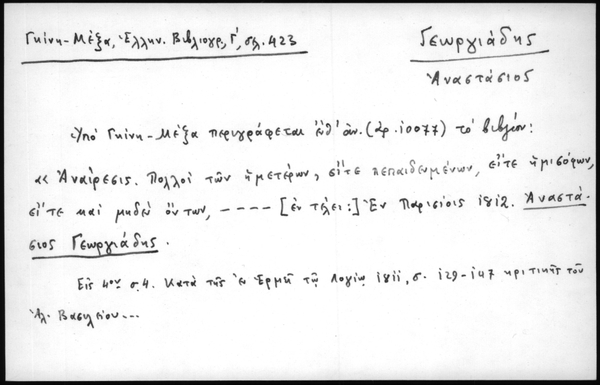 Γκίνη-Μέξα, Ἑλλην. Βιβλιογρ. Γ΄, σελ. 423
Γεωργιάδης
Ἀναστάσιος
Ὑπὸ Γκίνη-Μέξα περιγράφεται ἐνθ' ἀν. (ἀρ. 10077) τὸ βιβλίον:
«Ἀναίρεσις. Πολλοὶ τῶν ἡμετέρων, εἴτε πεπαιδευμένων, εἴτε ἡμισόφων,
εἴτε καὶ μηδὲν ὄντων, ---- [ἐν τέλει:] Ἐν Παρισίοις 1812. Ἀναστά-
σιος Γεωργιάδης.
Εἰς 4ον σ. 4. Κατὰ τῆς ἐν Ἑρμῇ τῷ Λογίῳ 1811, σ. 129-147 κριτικῆς τοῦ
Ἀλ. Βασιλείου...